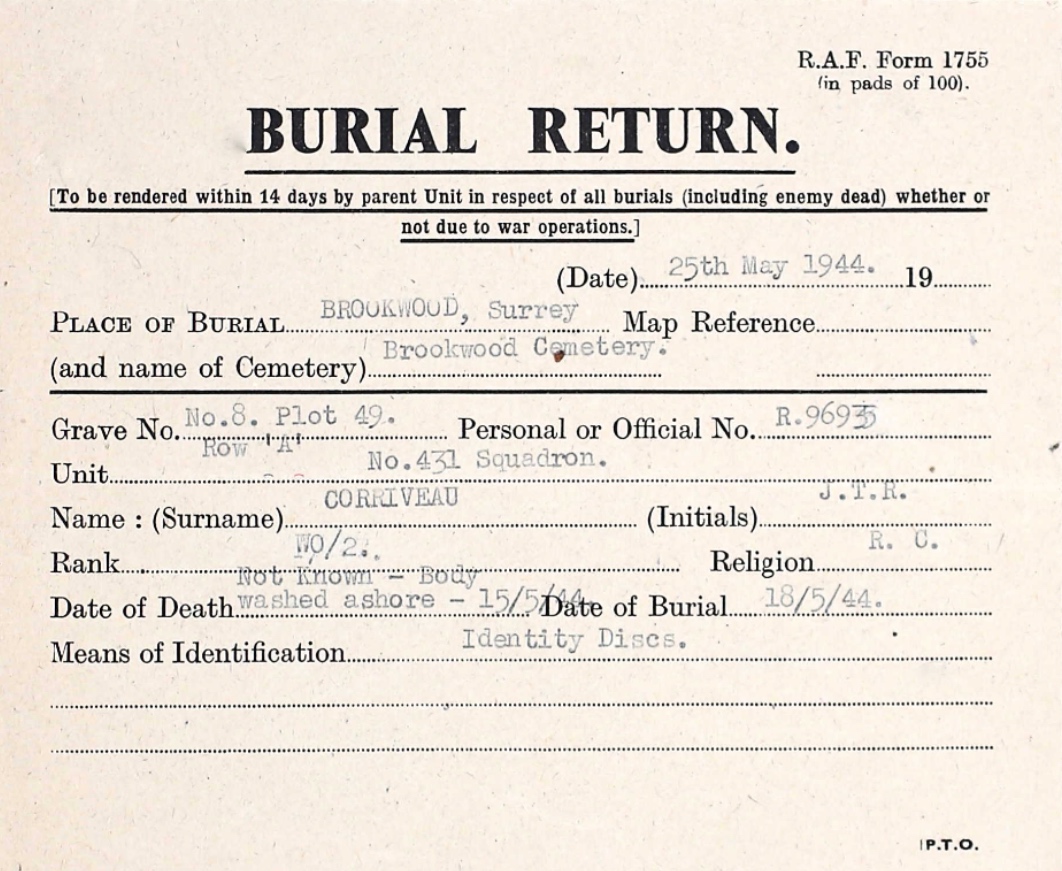 R.A.F. Form 1755
(in pads of 100).
BURIAL RETURN.
[To be rendered within 14 days by parent Unit in respect of all burials (including enemy dead) whether or
not due to war operations.]
(Date) 25th May 1944. 19
PLACE OF BURIAL BROOKWOOD, Surrey Map Reference
(and name of Cemetery) Brookwood Cemetery.
Grave No. No.8. Plot 49. Personal or Official No.
Row 'A'
Unit No.431 Squadron.
Name : (Surname) CORRIVEAU (Initials) J.T.R.
Rank WO/2. Religion R. C.
Not Known - Body
Date of Death washed ashore - 15/5/44. Date of Burial 18/5/44.
Means of Identification Identity Discs.
P.T.O.